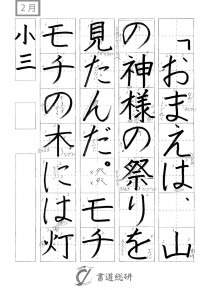 2月
「おまえは、山
の神様の祭りを
見たんだ。モチ
モチの木には灯
小三
書道総研